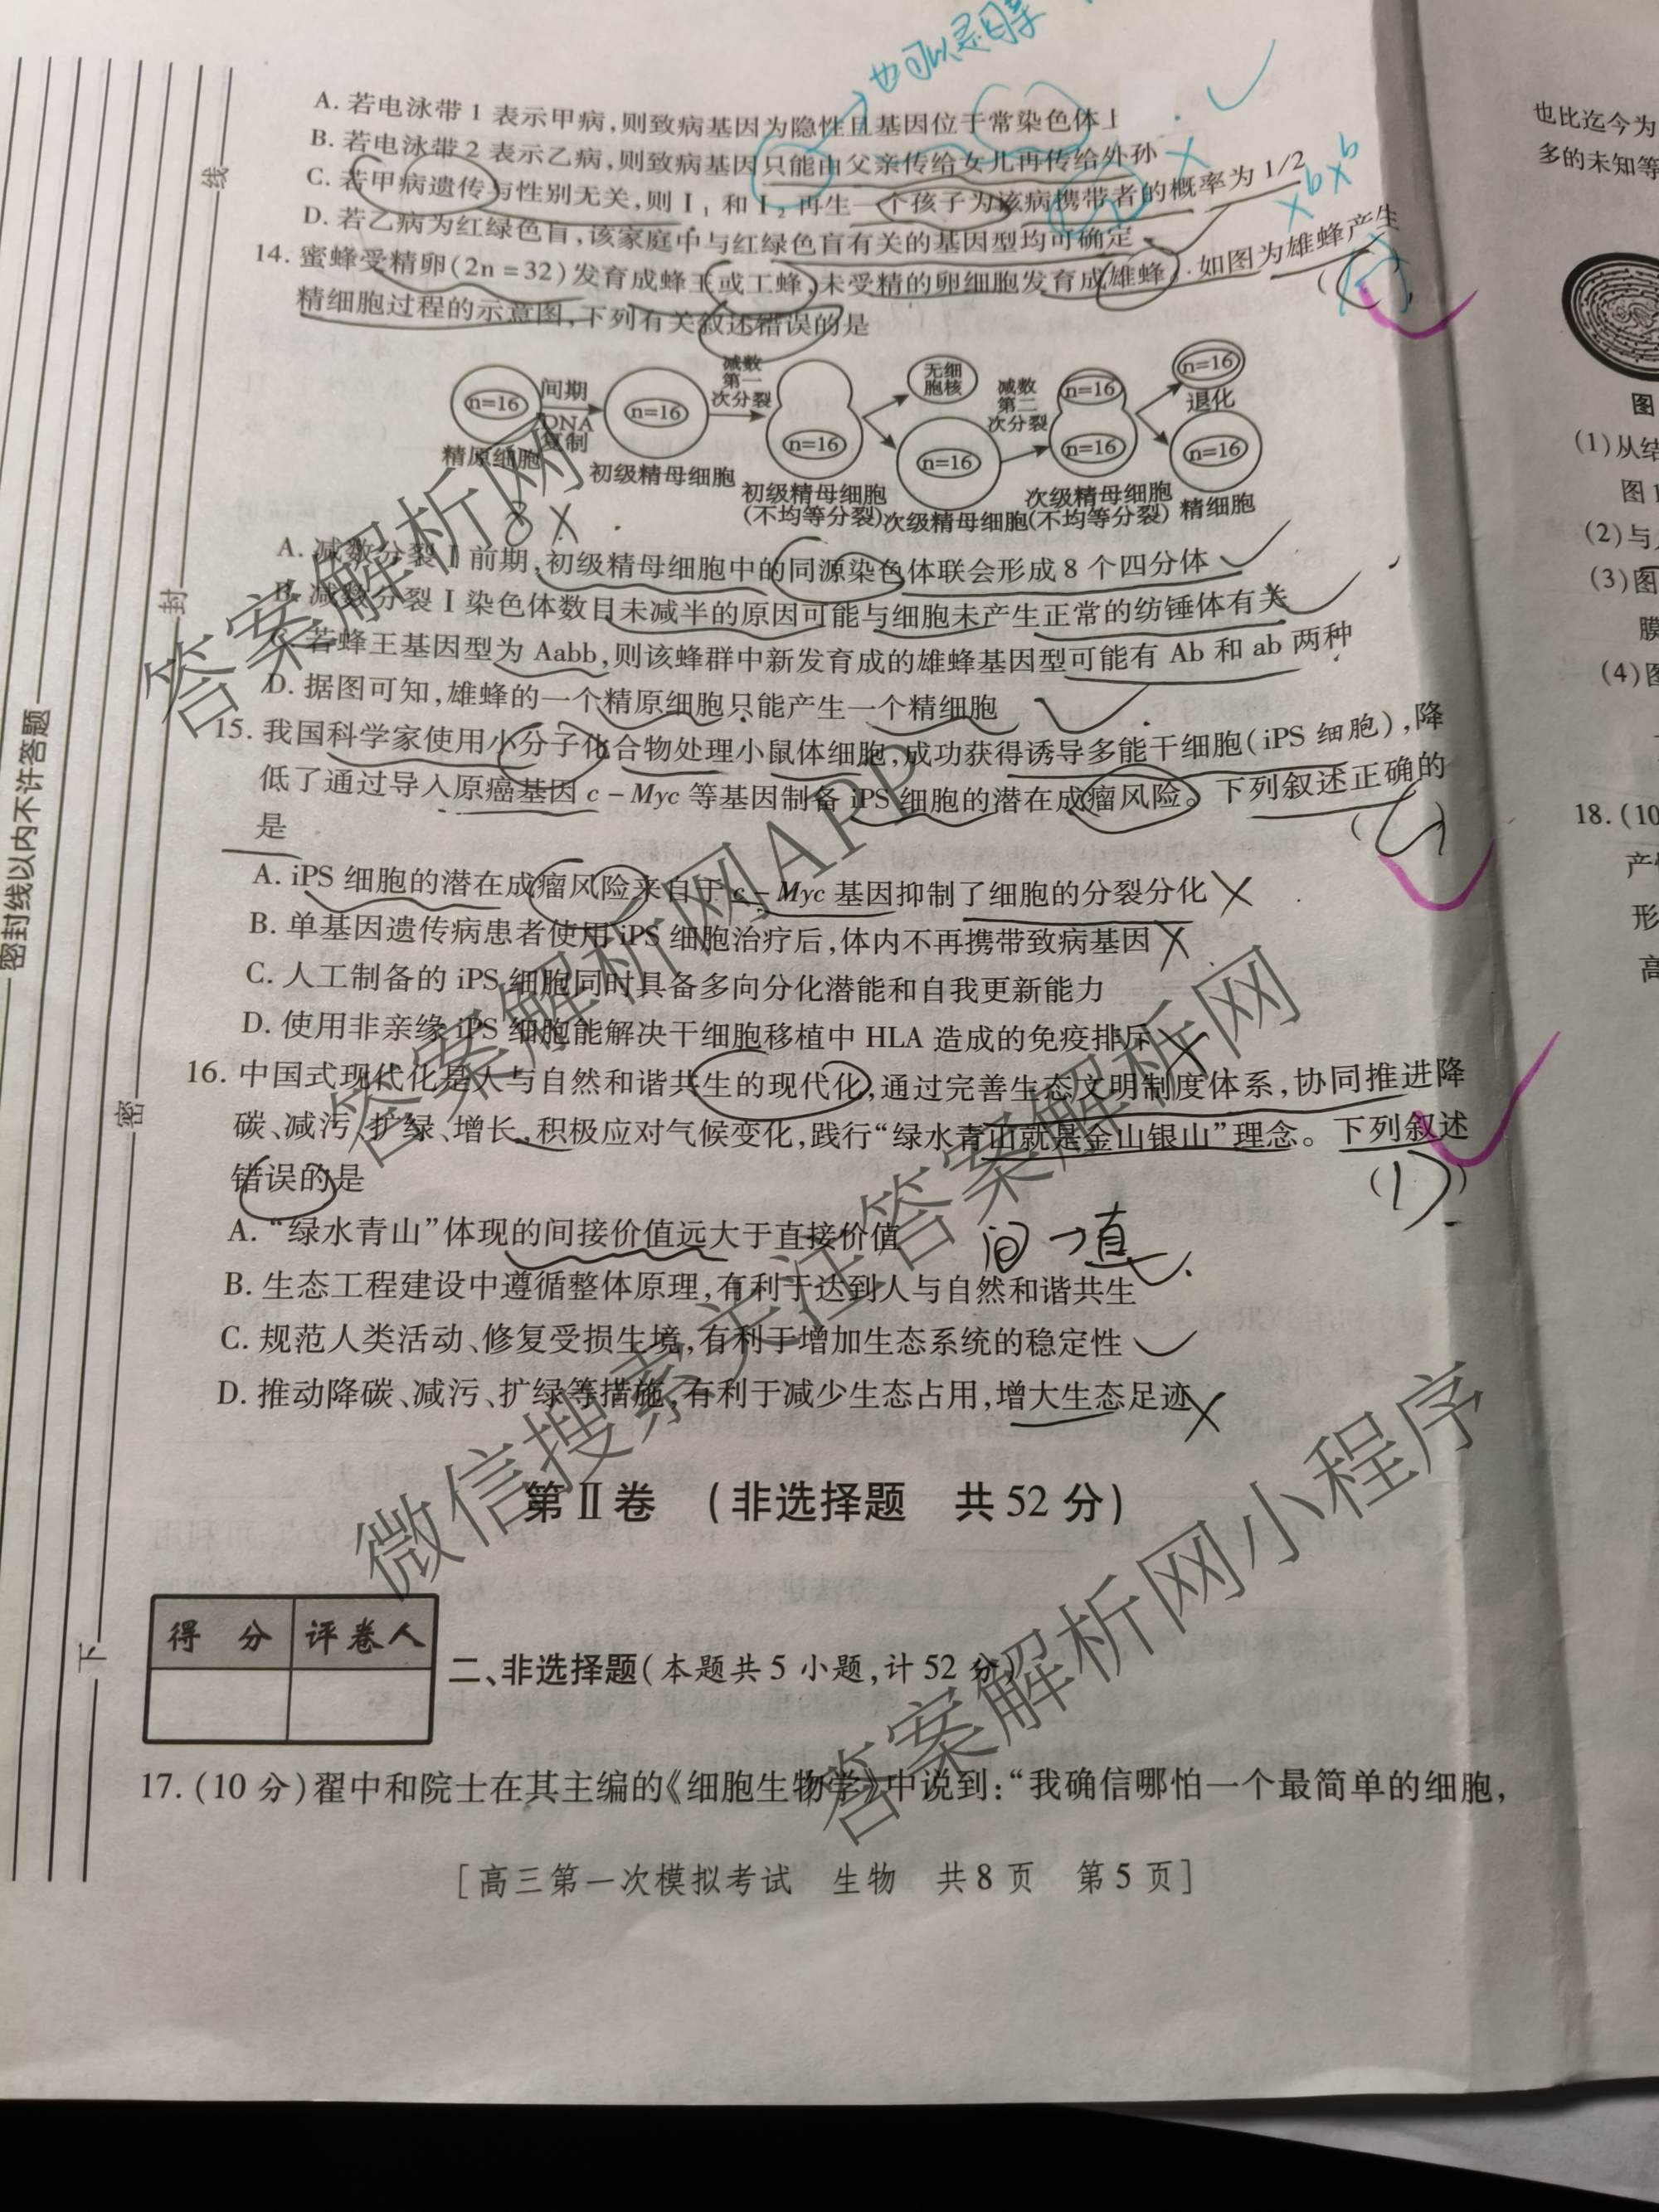 也可以是母亲
A. 若电泳带 1 表示甲病,则致病基因为隐性且基因位于常染色体上
B. 若电泳带 2 表示乙病,则致病基因只能由父亲传给女儿再传给外孙
C. 若甲病遗传与性别无关,则 I₁ 和 I₂ 再生一个孩子为该病携带者的概率为 1/2
D. 若乙病为红绿色盲,该家庭中与红绿色盲有关的基因型均可确定
14. 蜜蜂受精卵(2n=32)发育成蜂王或工蜂,未受精的卵细胞发育成雄蜂。如图为雄蜂产生
精细胞过程的示意图,下列有关叙述错误的是
n=16
精原细胞
间期
DNA
复制
n=16
初级精母细胞
减数
第一
次分裂
n=16
初级精母细胞
(不均等分裂)
无细
胞核
n=16
次级精母细胞
减数
第二
次分裂
n=16
n=16
次级精母细胞
(不均等分裂)
n=16
退化
n=16
精细胞
A. 减数分裂 I 前期,初级精母细胞中的同源染色体联会形成 8 个四分体
B. 减数分裂 I 染色体数目未减半的原因可能与细胞未产生正常的纺锤体有关
C. 若蜂王基因型为 Aabb,则该蜂群中新发育成的雄蜂基因型可能有 Ab 和 ab 两种
D. 据图可知,雄蜂的一个精原细胞只能产生一个精细胞
15. 我国科学家使用小分子化合物处理小鼠体细胞,成功获得诱导多能干细胞(iPS 细胞),降
低了通过导入原癌基因 c-Myc 等基因制备 iPS 细胞的潜在成瘤风险。下列叙述正确的
是
A. iPS 细胞的潜在成瘤风险来自于 c-Myc 基因抑制了细胞的分裂分化
B. 单基因遗传病患者使用 iPS 细胞治疗后,体内不再携带致病基因
C. 人工制备的 iPS 细胞同时具备多向分化潜能和自我更新能力
D. 使用非亲缘 iPS 细胞能解决干细胞移植中 HLA 造成的免疫排斥
16. 中国式现代化是人与自然和谐共生的现代化,通过完善生态文明制度体系,协同推进降
碳、减污、扩绿、增长,积极应对气候变化,践行“绿水青山就是金山银山”理念。下列叙述
错误的是
A. “绿水青山”体现的间接价值远大于直接价值
间→直
B. 生态工程建设中遵循整体原理,有利于达到人与自然和谐共生
C. 规范人类活动、修复受损生境,有利于增加生态系统的稳定性
D. 推动降碳、减污、扩绿等措施,有利于减少生态占用,增大生态足迹
第Ⅱ卷 (非选择题 共 52 分)
得 分 评卷人
二、非选择题(本题共 5 小题,计 52 分)
17. (10 分)翟中和院士在其主编的《细胞生物学》中说到:“我确信哪怕一个最简单的细胞,
[高三第一次模拟考试 生物 共 8 页 第 5 页]
密封线以内不许答题
线
封
密
下
答案解析网
答案解析网APP
微信搜索关注答案解析网
答案解析网小程序
也比迄今为
多的未知等
图
(1)从结
图 1
(2)与
(3)图
膜
(4)图
18. (10
产
形
高